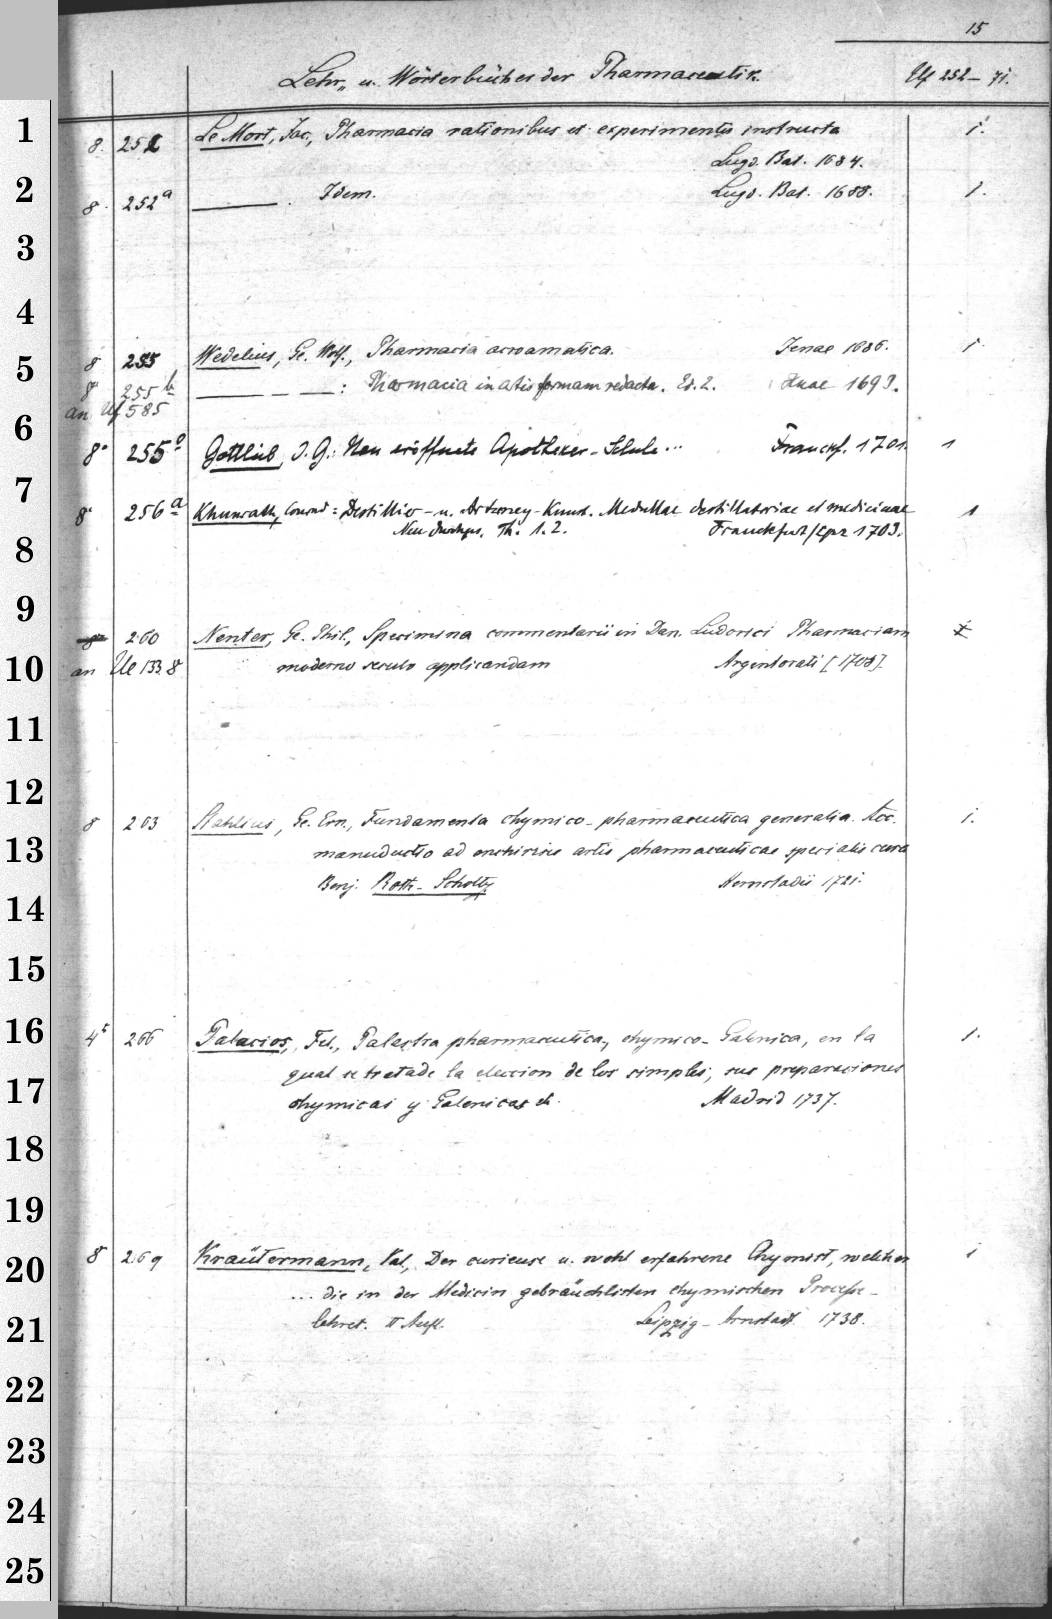 15
Lehr- u. Wörterbücher der Pharmaceutik. Uf 252–71.
1
8. 252 Le Mort, Jac., Pharmacia rationibus et experimentis instructa 1.
Lugd. Bat. 1684.
2
8. 252a ——— . Idem. Lugd. Bat. 1688. 1.
3
4
8 255 Wedelius, Ge. Wolf., Pharmacia acroamatica. Jenae 1686. 1
5
8° 255b ——— – —— : Pharmacia in artis formam redacta. Ed. 2. Jenae 1693.
an Uf 585
6
8° 255c Gottlieb, J. G.: Neu eröffnete Apotheker-Schule ... Franckf. 1701. 1
7
8° 256a Khunrath, Conrad: Destillier- u. Artzney-Kunst. Medullae destillatoriae et medicinae 1
Th. 1. 2. Franckfurt/Lpz 1703.
8
9
8° 260 Nenter, Ge. Phil., Specimina commentarii in Dan. Ludovici Pharmaciam 1
10
an Ue 133. 8 moderno seculo applicandam Argentorati [1708].
11
12
8 263 Stahlius, Ge. Ern., Fundamenta chymico-pharmaceutica generalia. Acc. 1.
13
manuductio ad enchirises artis pharmaceuticae specialis cura
Benj. Roth-Scholtz Hernstadii 1721.
14
15
16
4t 266 Palacios, Fel., Palestra pharmaceutica, chymico-Galenica, en la 1.
qual se trata de la eleccion de los simples, sus preparaciones
17
chymicas y Galenicas etc. Madrid 1737.
18
19
8 269 Kräutermann, Val., Der curieuse u. wohl erfahrene Chymist, welcher 1
20
... die in der Medicin gebräuchlisten chymischen Processe
lehret. II Aufl. Leipzig-Arnstadt 1738.
21
22
23
24
25